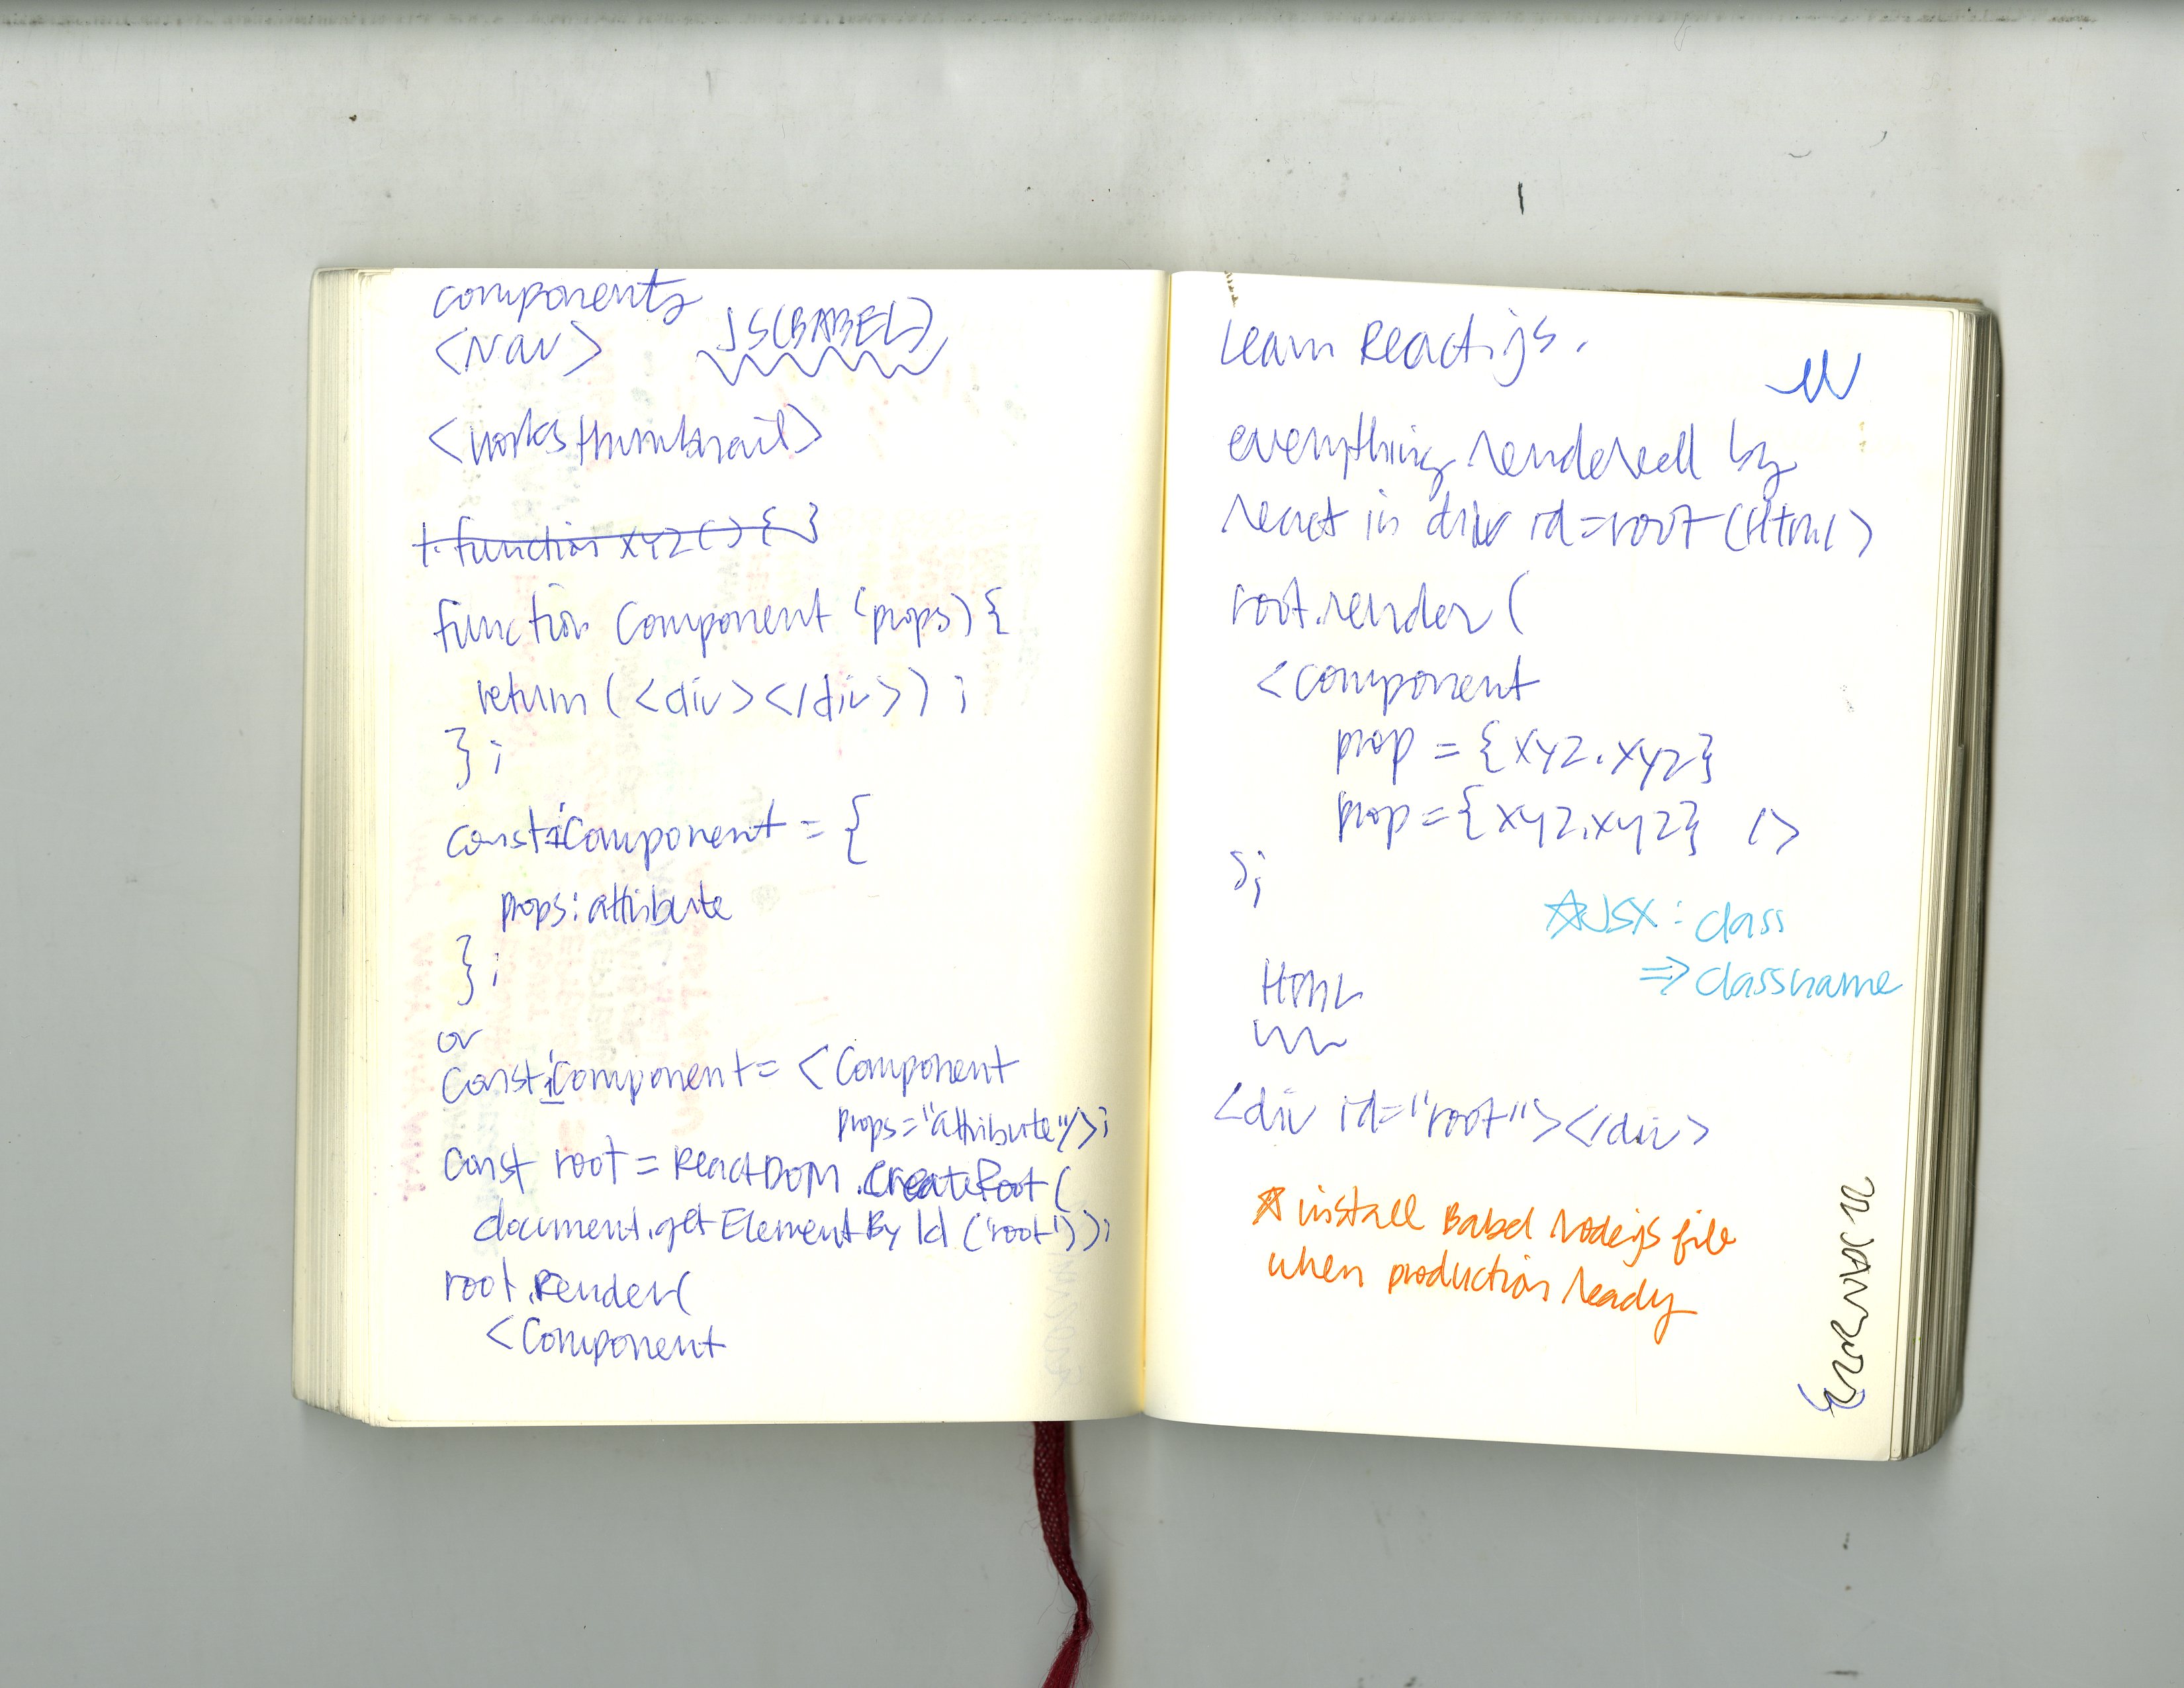 components
<Nav> JS(BABEL)
<worksthumbnail>
1. function XYZ() { }
function Component (props) {
return (<div></div>) ;
} ;
const iComponent = {
props: attribute
} ;
or
const iComponent = <Component
props="attribute"/>;
const root = ReactDOM.createRoot(
document.getElementById('root'));
root.Render(
<Component
Learn React.js.
everything rendered by
react in div id=root (Html)
root.render(
<component
prop = {xyz.xyz}
prop = {xyz.xyz} />
);
☆JSX : class
⇒ classname
HTML
<div id="root"></div>
☆ install Babel Node.js file
when production ready